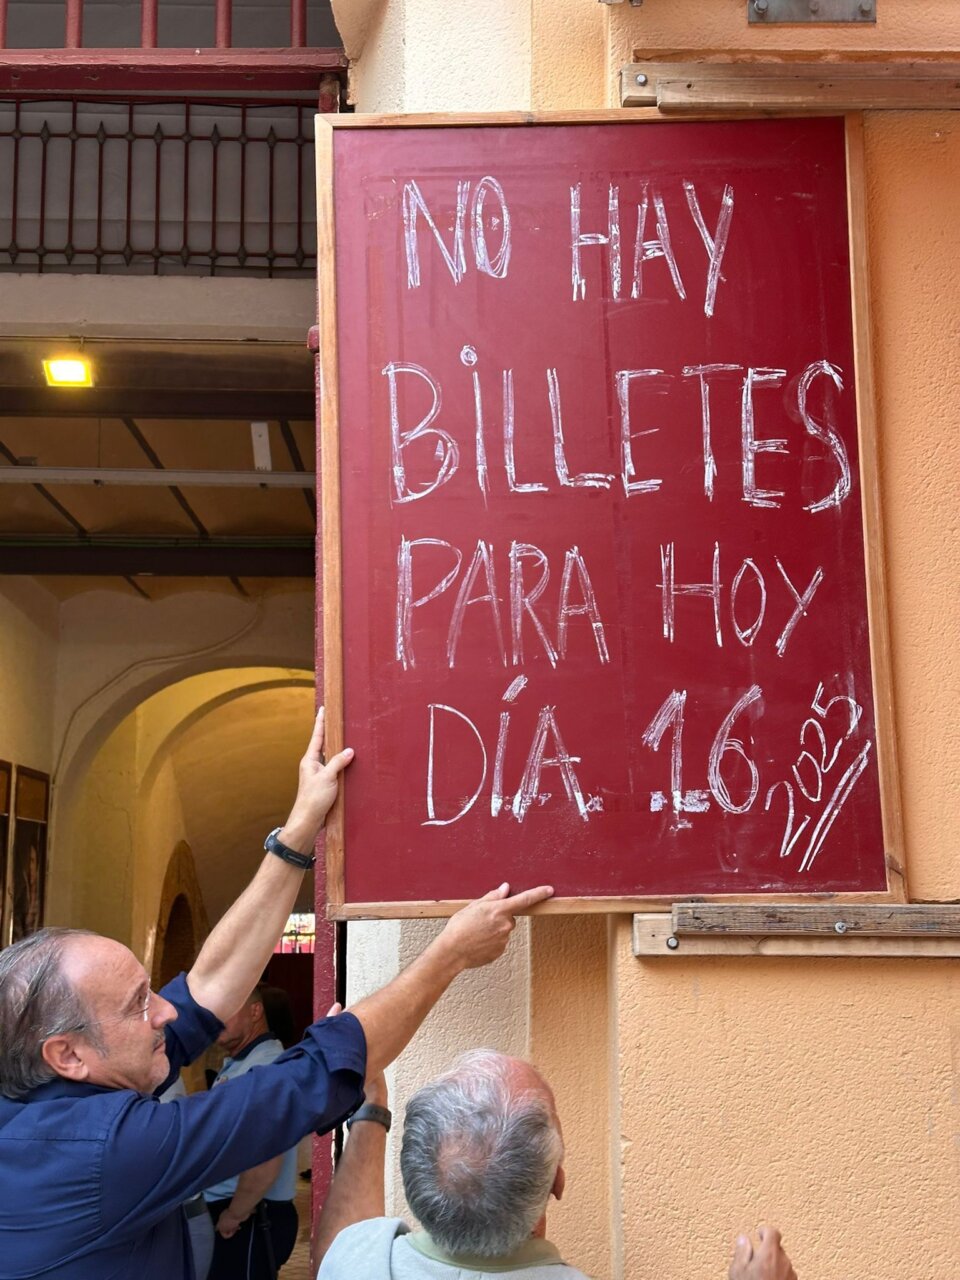 NO HAY
BiLLETES
PARA HOY
DÍA 16 2025